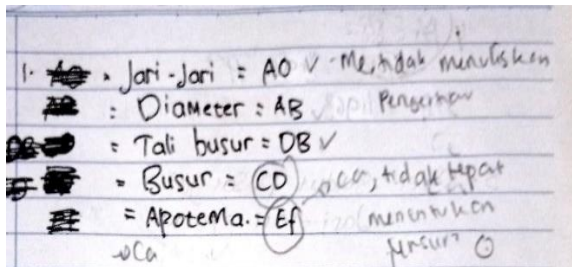 1. • Jari-Jari = AO ✓ - Me, tidak menuliskan
= Diameter = AB Pengertian
= Tali busur = DB ✓
= Busur = CD → Ca, tidak tepat
= Apotema. = Ef menentukan
→ Ca unsur² O